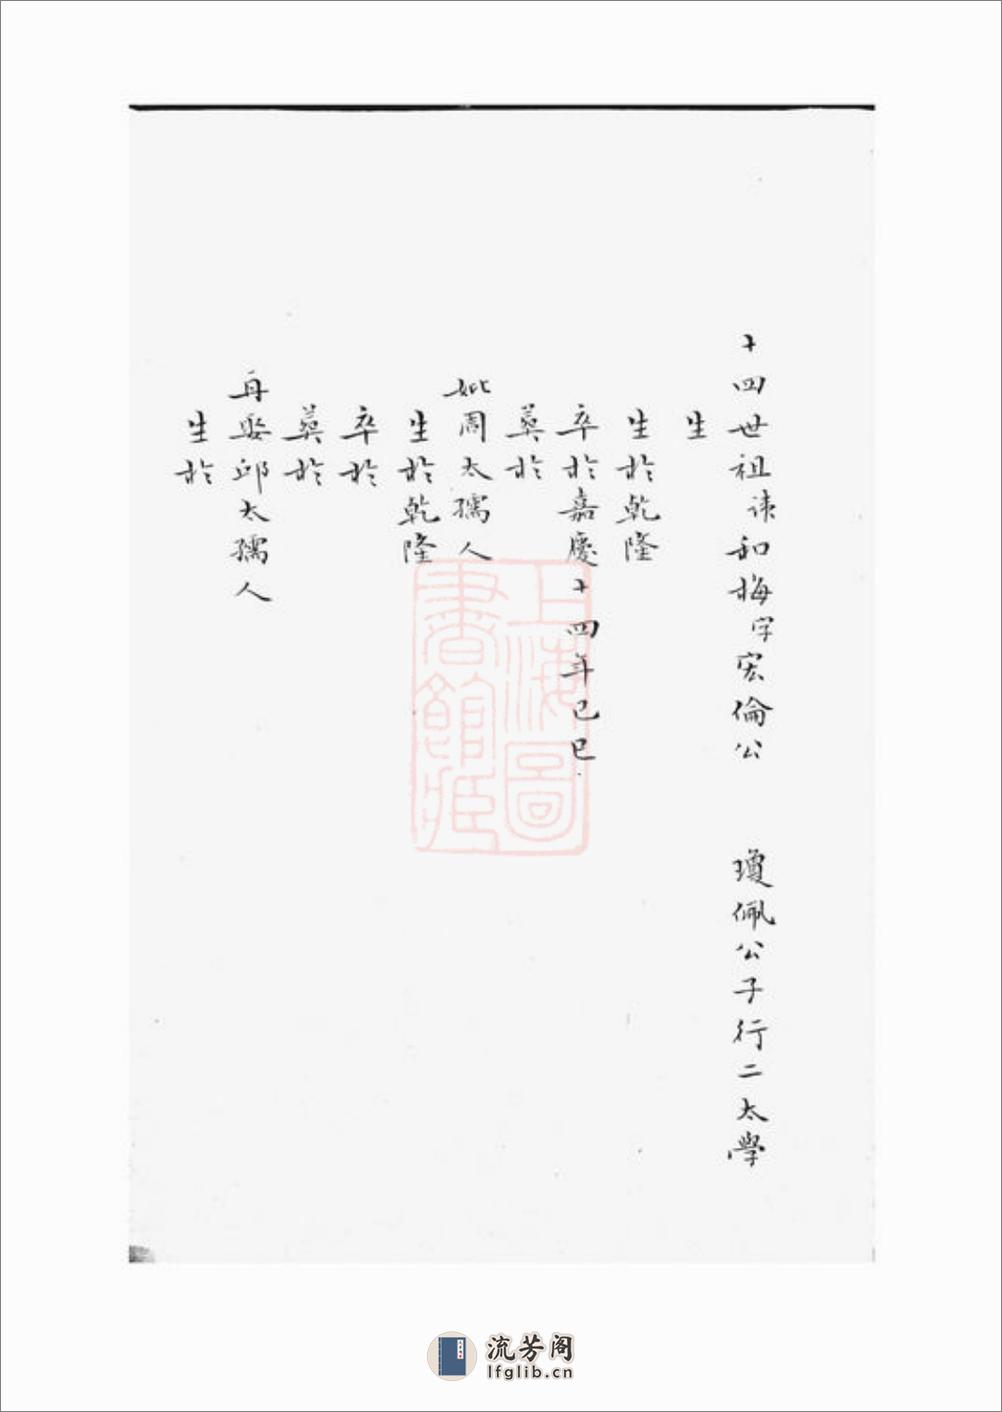 十四世祖諱和梅字宏倫公 瓊佩公子行二太學
生
生於乾隆
卒於嘉慶十四年己巳
葬於
妣周太孺人
生於乾隆
卒於
葬於
再娶邱太孺人
生於
上海圖書館藏
流芳阁
lfglib.cn